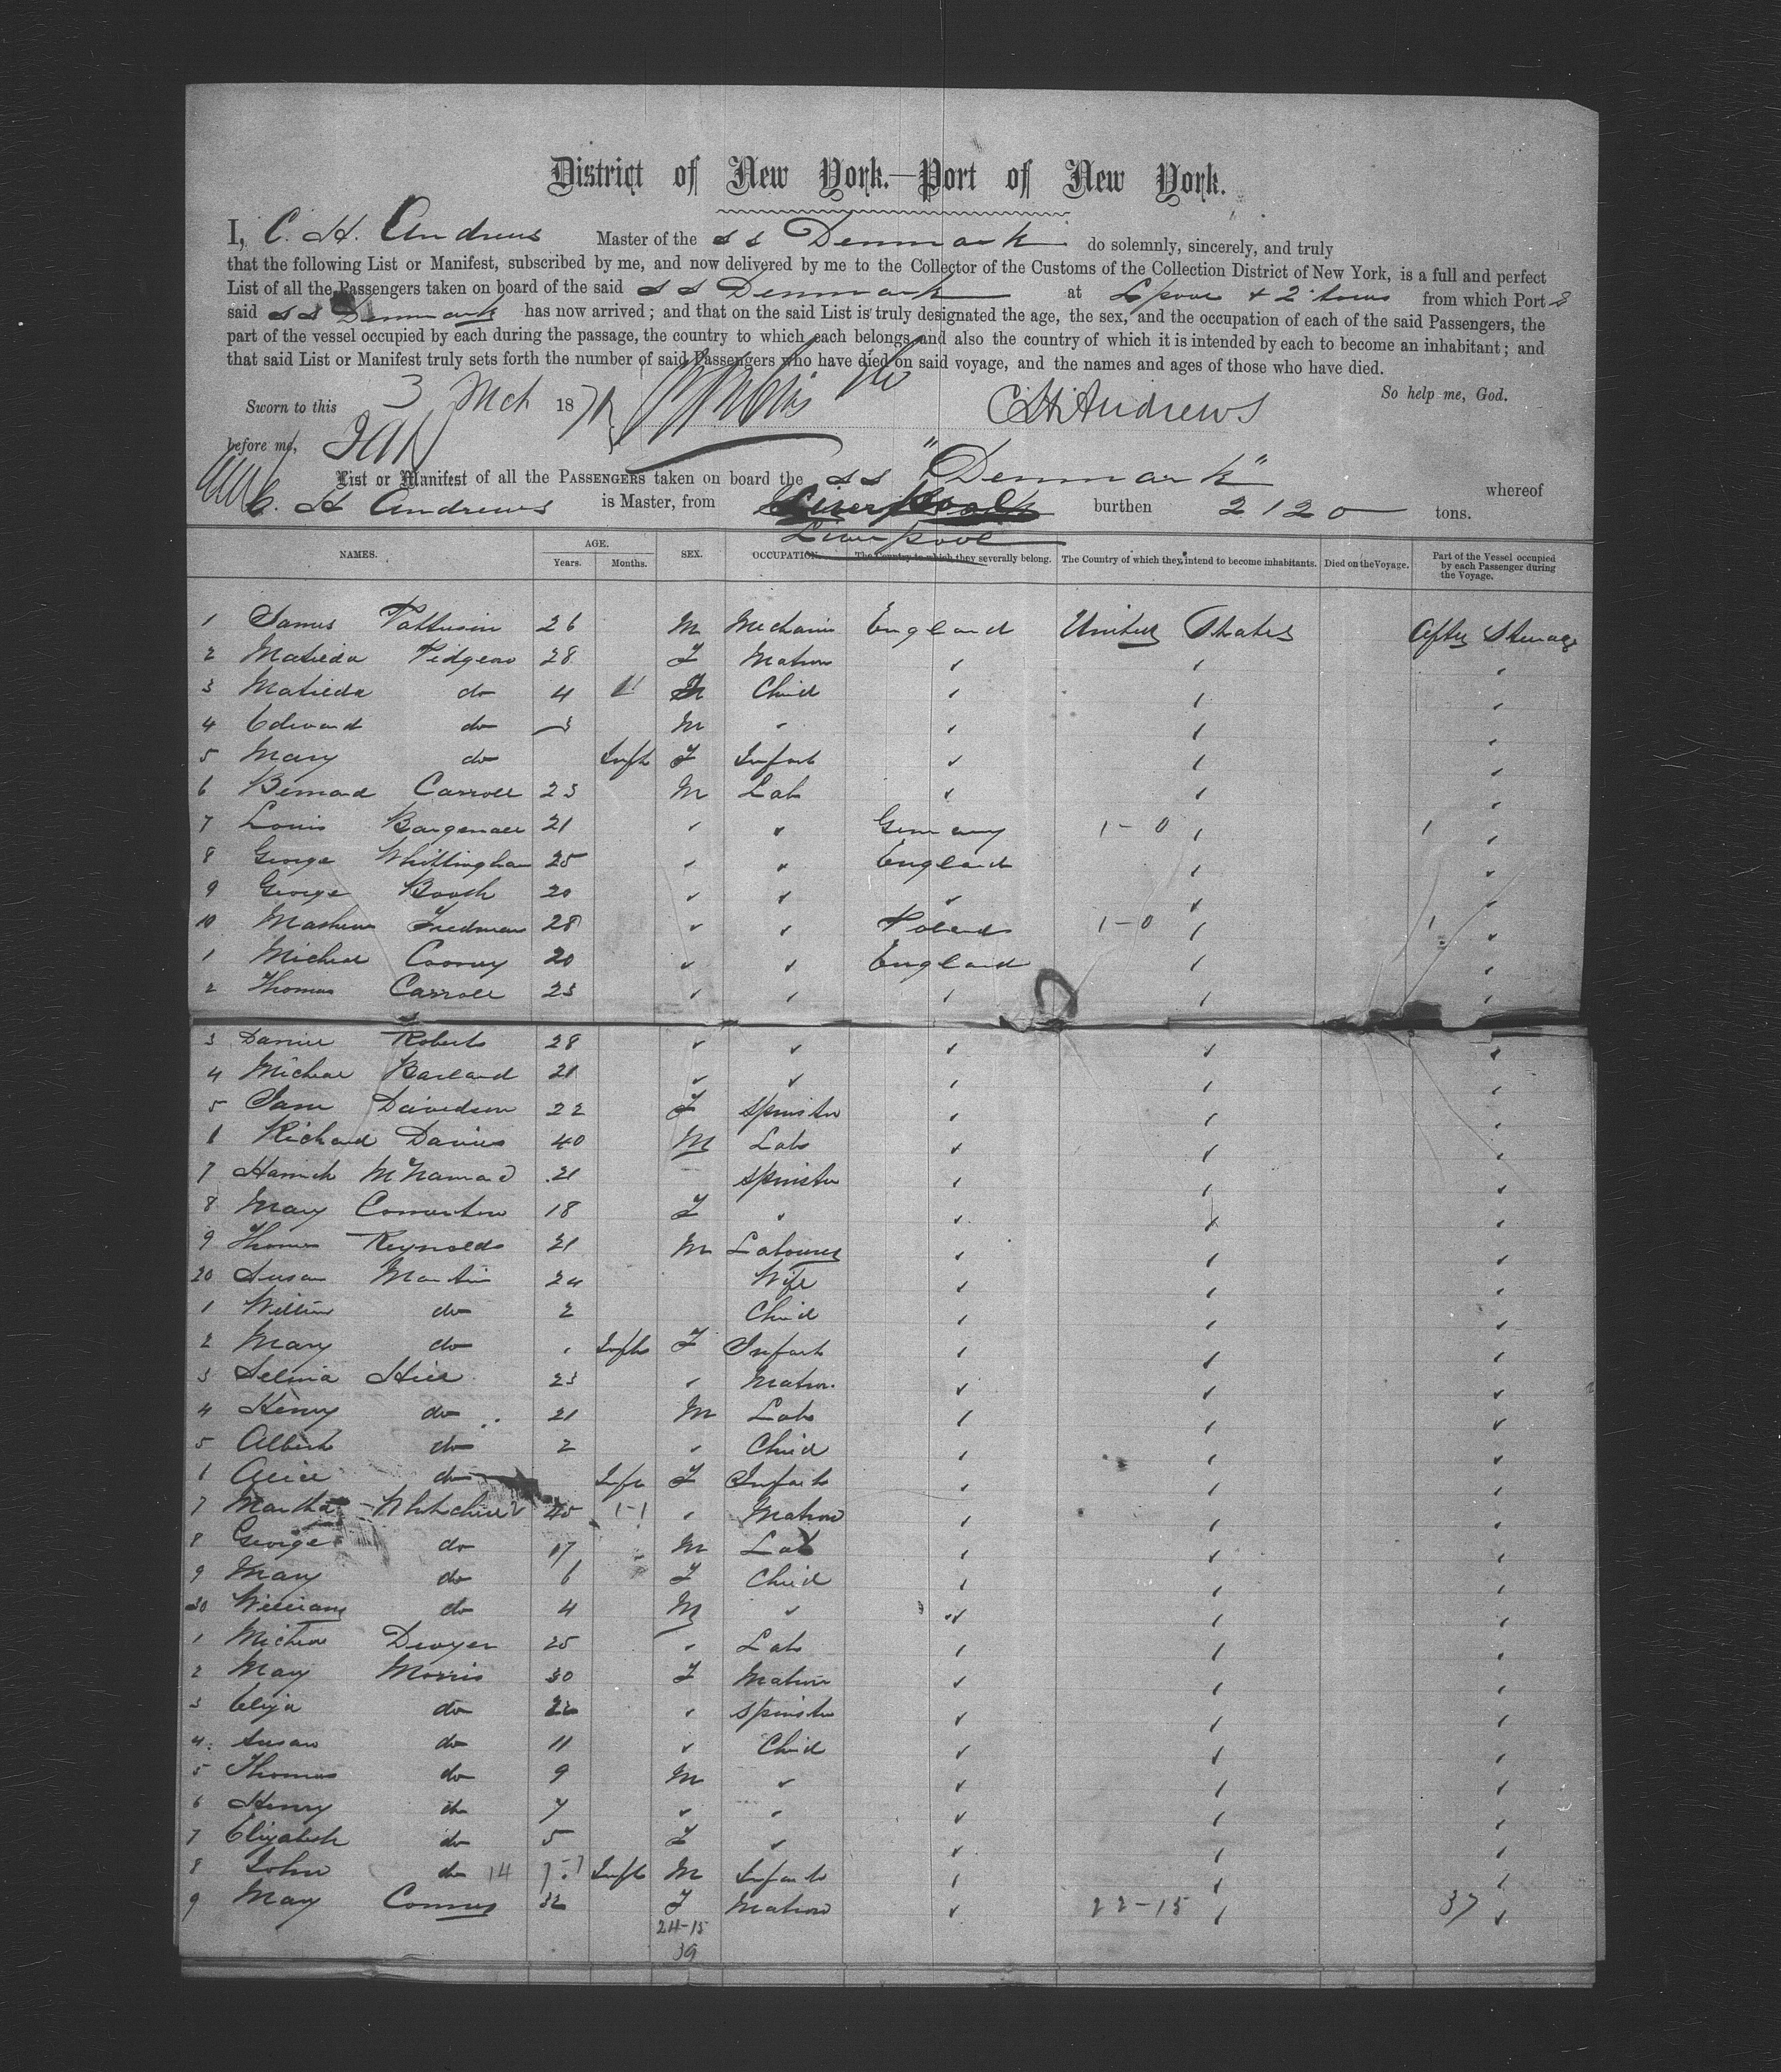 District of New York.—Port of New York.
I, C. H. Andrews Master of the S S Denmark do solemnly, sincerely, and truly
that the following List or Manifest, subscribed by me, and now delivered by me to the Collector of the Customs of the Collection District of New York, is a full and perfect
List of all the Passengers taken on board of the said S S Denmark at Lpool & from which Port
said S S Denmark has now arrived; and that on the said List is truly designated the age, the sex, and the occupation of each of the said Passengers, the
part of the vessel occupied by each during the passage, the country to which each belongs and also the country of which it is intended by each to become an inhabitant; and
that said List or Manifest truly sets forth the number of said Passengers who have died on said voyage, and the names and ages of those who have died.
So help me, God.
Sworn to this 3 Mch 187 C H Andrews
before me,
List or Manifest of all the PASSENGERS taken on board the S S "Denmark" whereof
C. H Andrews is Master, from Liverpool burthen 2120 tons.
Liverpool
NAMES. AGE. Years. Months. SEX. OCCUPATION. The Country to which they severally belong. The Country of which they intend to become inhabitants. Died on the Voyage. Part of the Vessel occupied by each Passenger during the Voyage.
1 James 26 M Mechanic England United States After Steerage
2 Matilda 28 F Matron
3 Matilda do 4 Child
4 Edward do 3 M "
5 Mary do Inft F Infant
6 Bernard Carroll 23 M Lab
7 Louis 21 " " Germany 1-0 1
8 George Whittingham 25 " " England
9 George Booth 20 " "
10 Fredman 28 " " Poland 1-0 1
1 Michael Cooney 20 " " England
2 Thomas Carroll 23 " "
3 Daniel Roberts 28 " "
4 Michael 21 " "
5 Jane Davidson 22 F Spinster
6 Richard Davies 40 M Lab
7 Hannah 21 Spinster
8 Mary 18 F "
9 Thomas Reynolds 21 M Labourer
20 Susan Martin 24 Wife
1 William do 2 Child
2 Mary do Inft F Infant
3 Selina Hill 23 " Matron
4 Henry do 21 M Lab
5 Albert do 2 " Child
6 Alice do Inft F Infant
7 Martha 45 " Matron
8 George do 17 M Lab
9 Mary do 6 F Child
30 William do 4 M "
1 Michael Dwyer 25 " Lab
2 Mary Morris 30 F Matron
3 Eliza do " Spinster
4 Susan do 11 " Child
5 Thomas do 9 M "
6 Henry do 7 " "
7 Elizabeth do 5 F "
8 John do 14 Inft M Infant
9 Mary 32 F Matron 22-15 37
24-15
39